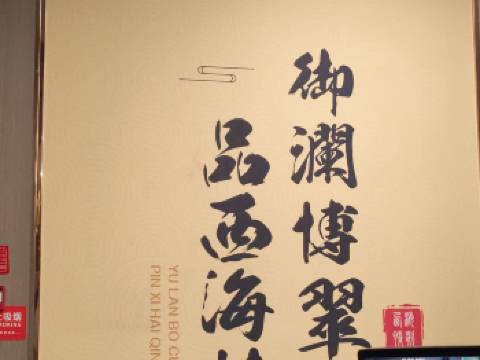 御瀾博翠
品西海
YU LAN BO
PIN XI HAI
吸烟